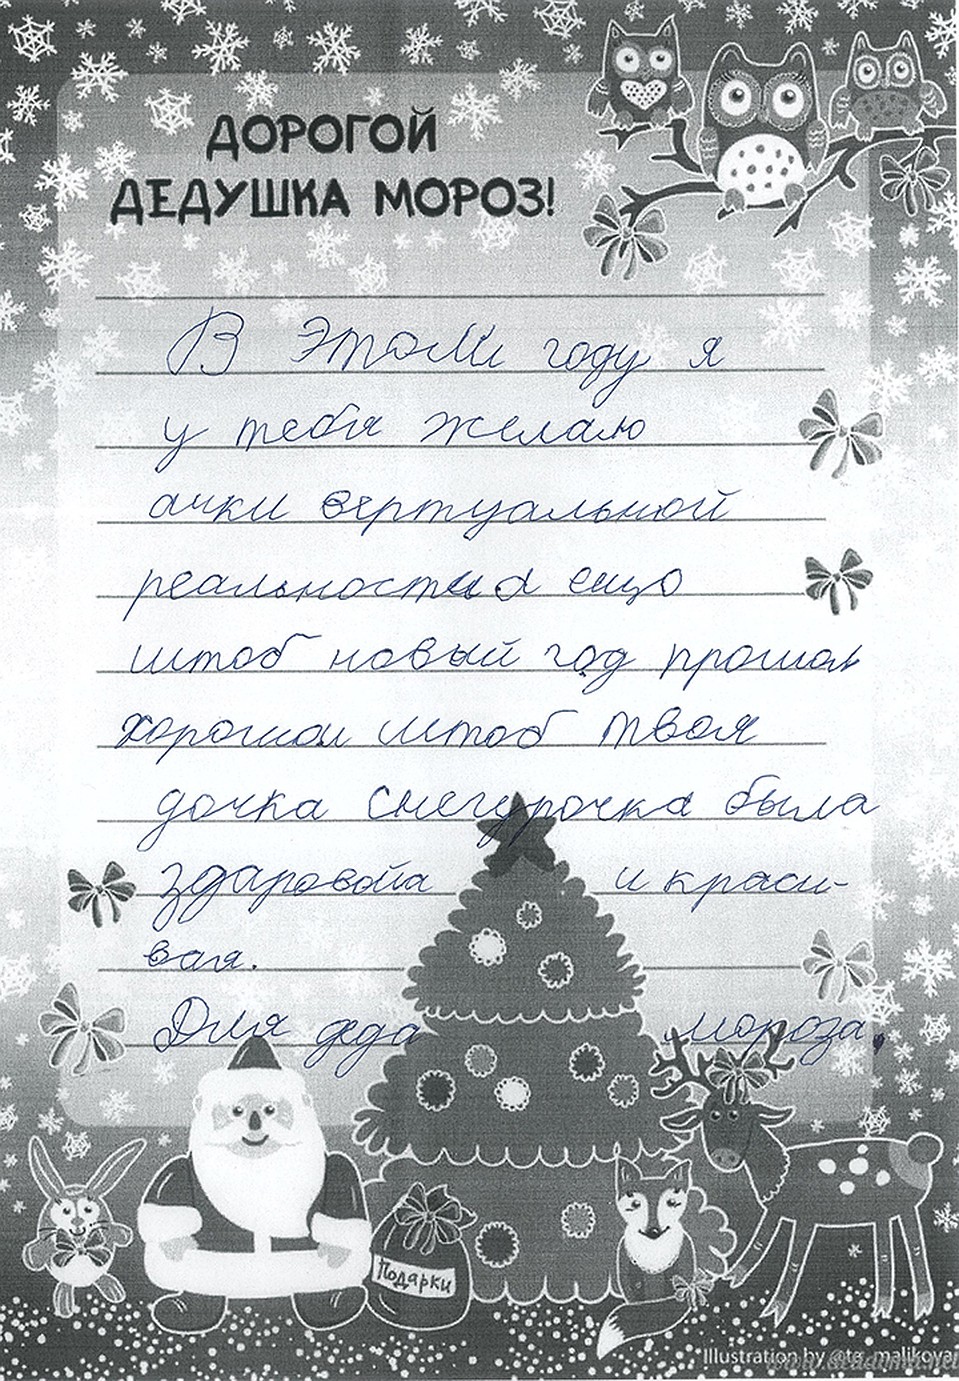 ДОРОГОЙ
ДЕДУШКА МОРОЗ!
В этом году я
у тебя желаю
ачки вертуальной
реальносты а ещо
штоб новый год прошол
хорошои штоб твоя
дочка снегурочка была
здаровойа и краси-
вая.
Для деда мороза.
Подарки
Illustration by @ta_malikova